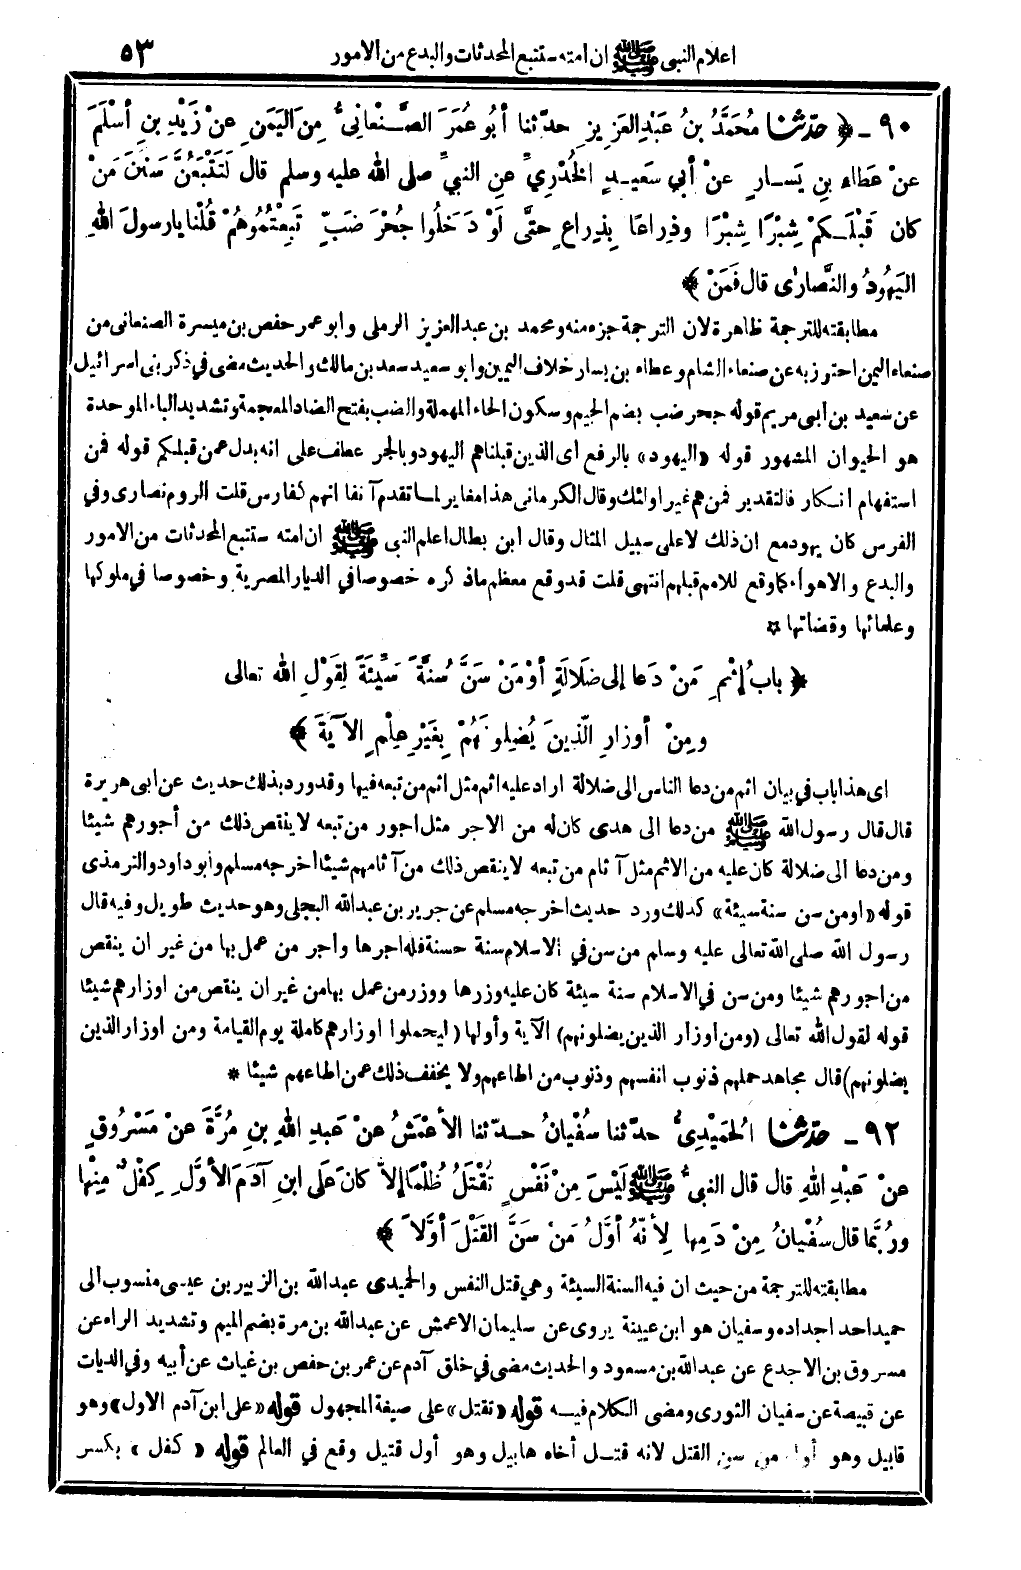 اعلام النبي ﷺ ان امته ستتبع المحدثات والبدع من الامور ٥٣
٩٠ - ﴿ حدّثنا مُحَمَّدُ بنُ عَبْدِ العَزِيزِ حدّثنا أبُو عُمَرَ الصَّنْعانِيُّ مِنَ اليَمَنِ عنْ زَيْدِ بنِ أسْلَمَ
عنْ عَطاءِ بنِ يَسارٍ عنْ أبي سَعِيدٍ الخُدْرِيِّ عنِ النبيِّ صلى الله عليه وسلم قال لَتَتْبَعُنَّ سَنَنَ مَنْ
كان قَبْلَكُمْ شِبْرًا شِبْرًا وذِراعًا بِذِراعٍ حتَّى لَوْ دَخَلُوا جُحْرَ ضَبٍّ تَبِعْتُمُوهُمْ قُلْنا يارسولَ اللهِ
اليَهُودُ والنَّصارَى قال فَمَنْ ﴾
مطابقته للترجمة ظاهرة لان الترجمة جزء منه ومحمد بن عبد العزيز الرملى وابو عمر حفص بن ميسرة الصنعانى من
صنعاء اليمن احترز به عن صنعاء الشام وعطاء بن يسار خلاف اليمين وابو سعيد سعد بن مالك والحديث مضى في ذكر بنى اسرائيل
عن سعيد بن أبى مريم قوله جحر ضب بضم الجيم وسكون الحاء المهملة والضب بفتح الضاد المعجمة وتشديد الباء الموحدة
هو الحيوان المشهور قوله «اليهود» بالرفع اى الذين قبلنا هم اليهود وبالجر عطف على انه بدل عمن قبلكم قوله فمن
استفهام انكار فالتقدير فمن هم غير اولئك وقال الكرمانى هذا مغاير لما تقدم آنفا انهم كفارس قلت الروم نصارى وفي
الفرس كان يهود مع ان ذلك لا على سبيل المثال وقال ابن بطال اعلم النبى ﷺ ان امته ستتبع المحدثات من الامور
والبدع والاهواء كما وقع للامم قبلهم انتهى قلت قد وقع معظم ماذكره خصوصا في الديار المصرية وخصوصا في ملوكها
وعلمائها وقضاتها ✩
﴿ بابُ إثْمِ مَنْ دَعا إلى ضَلالَةٍ أوْ مَنْ سَنَّ سُنَّةً سَيِّئَةً لِقَوْلِ الله تعالى
ومِنْ أوزارِ الّذِينَ يُضِلُّونَهُمْ بِغَيْرِ عِلْمٍ الآيَةَ ﴾
اى هذا باب في بيان اثم من دعا الناس الى ضلالة اراد عليه اثم مثل اثم من تبعه فيها وقد ورد بذلك حديث عن ابى هريرة
قال قال رسول الله ﷺ من دعا الى هدى كان له من الاجر مثل اجور من تبعه لا ينقص ذلك من أجورهم شيئا
ومن دعا الى ضلالة كان عليه من الاثم مثل آثام من تبعه لا ينقص ذلك من آثامهم شيئا أخرجه مسلم وأبوداود والترمذى
قوله «أومن سن سنة سيئة» كذلك ورد حديث اخرجه مسلم عن جرير بن عبدالله البجلى وهو حديث طويل وفيه قال
رسول الله صلى الله تعالى عليه وسلم من سن في الاسلام سنة حسنة فله اجرها وأجر من عمل بها من غير ان ينقص
من اجورهم شيئا ومن سن في الاسلام سنة سيئة كان عليه وزرها ووزر من عمل بها من غير ان ينقص من اوزارهم شيئا
قوله لقول الله تعالى (ومن أوزار الذين يضلونهم) الآية وأولها (ليحملوا اوزارهم كاملة يوم القيامة ومن اوزار الذين
يضلونهم) قال مجاهد حملهم ذنوب انفسهم وذنوب من اطاعهم ولا يخفف ذلك عمن اطاعهم شيئا *
٩٢ - حدّثنا الحُمَيْدِىُّ حدّثنا سُفْيانُ حدّثنا الأعْمَشُ عنْ عَبدِ اللهِ بنِ مُرَّةَ عنْ مَسْرُوقٍ
عنْ عَبْدِ اللهِ قال قال النبىُّ ﷺ لَيْسَ مِنْ نَفْسٍ تُقْتَلُ ظُلْمًا إلاَّ كانَ عَلَى ابنِ آدَمَ الأوَّلِ كِفْلٌ مِنْها
ورُبَّما قال سُفْيانُ مِنْ دَمِها لِأنَّهُ أوَّلُ مَنْ سَنَّ القَتْلَ أوَّلاً ﴾
مطابقته للترجمة من حيث ان فيه السنة السيئة وهي قتل النفس والحميدى عبدالله بن الزبير بن عيسى منسوب الى
حميد احد اجداده وسفيان هو ابن عيينة يروى عن سليمان الاعمش عن عبدالله بن مرة بضم الميم وتشديد الراء عن
مسروق بن الاجدع عن عبدالله بن مسعود والحديث مضى في خلق آدم عن عمر بن حفص بن غياث عن أبيه وفي الديات
عن قبيصة عن سفيان الثورى ومضى الكلام فيه قوله «تقتل» على صيغة المجهول قوله «على ابن آدم الاول» وهو
قابيل وهو أول من سن القتل لانه قتل أخاه هابيل وهو أول قتيل وقع في العالم قوله «كفل» بكسر